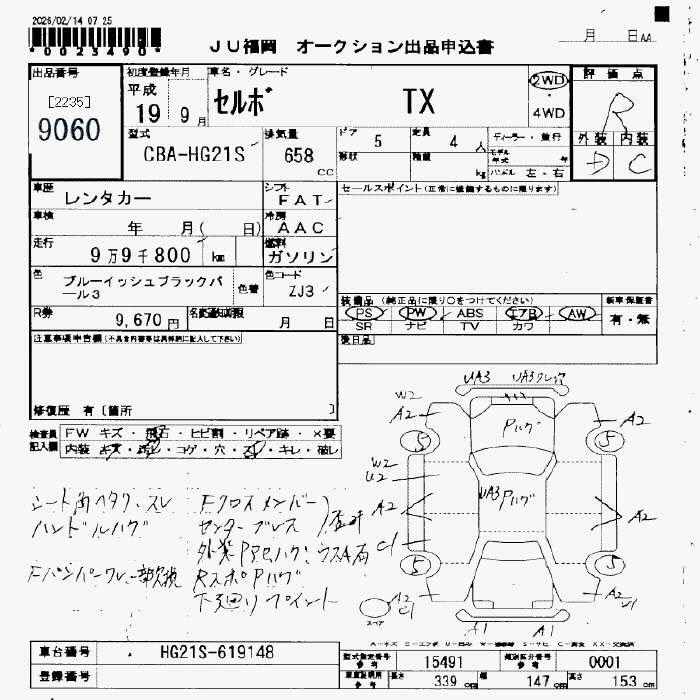 2026/02/14 07 25
*0023490*
JU福岡 オークション出品申込書
月 日
出品番号
[2235]
9060
初度登録年月
平成
19 9月
車名・グレード
セルボ TX
2WD
・
4WD
評価点
R
外装 内装
D C
型式
CBA-HG21S
排気量
658
cc
ドア 5
定員 4 人
形状
積量 kg
ディーラー・並行
モデル年式 年
ハンドル 左・右
車歴
レンタカー
シフト
FAT
セールスポイント(正常に機能するものに限ります)
車検
年 月( 日)
冷房
AAC
走行
9万9千800 km
燃料
ガソリン
色
ブルーイッシュブラックパール3
色替
色コード
ZJ3
装備品(純正品に限り○をつけてください)
PS PW ABS エアB AW
SR ナビ TV カワ
新車保証書
有・無
R券
9,670円
名変通知期限
月 日
後日品
注意事項申告欄(不具合内容等は具体的に記入して下さい)
修復歴 有〔箇所 〕
検査員記入欄
FW キズ・飛石・ヒビ割・リペア跡・×要
内装 キズ・汚レ・コゲ・穴・スレ・キレ・破レ
シート角ヘタリ、スレ
ハンドルハゲ
Fクロスメンバー
センターブレス
下廻りペイント
UA3
W2
A2
A2
Pハゲ
5
5
W2
U2
UA3 Pハゲ
A2
A2
C1
5
5
A2
C1
A2
スペア
A1
A1
車台番号
HG21S-619148
登録番号
型式指定番号
参考
15491
類別区分番号
参考
0001
長さ 339 cm
幅 147 cm
高さ 153 cm